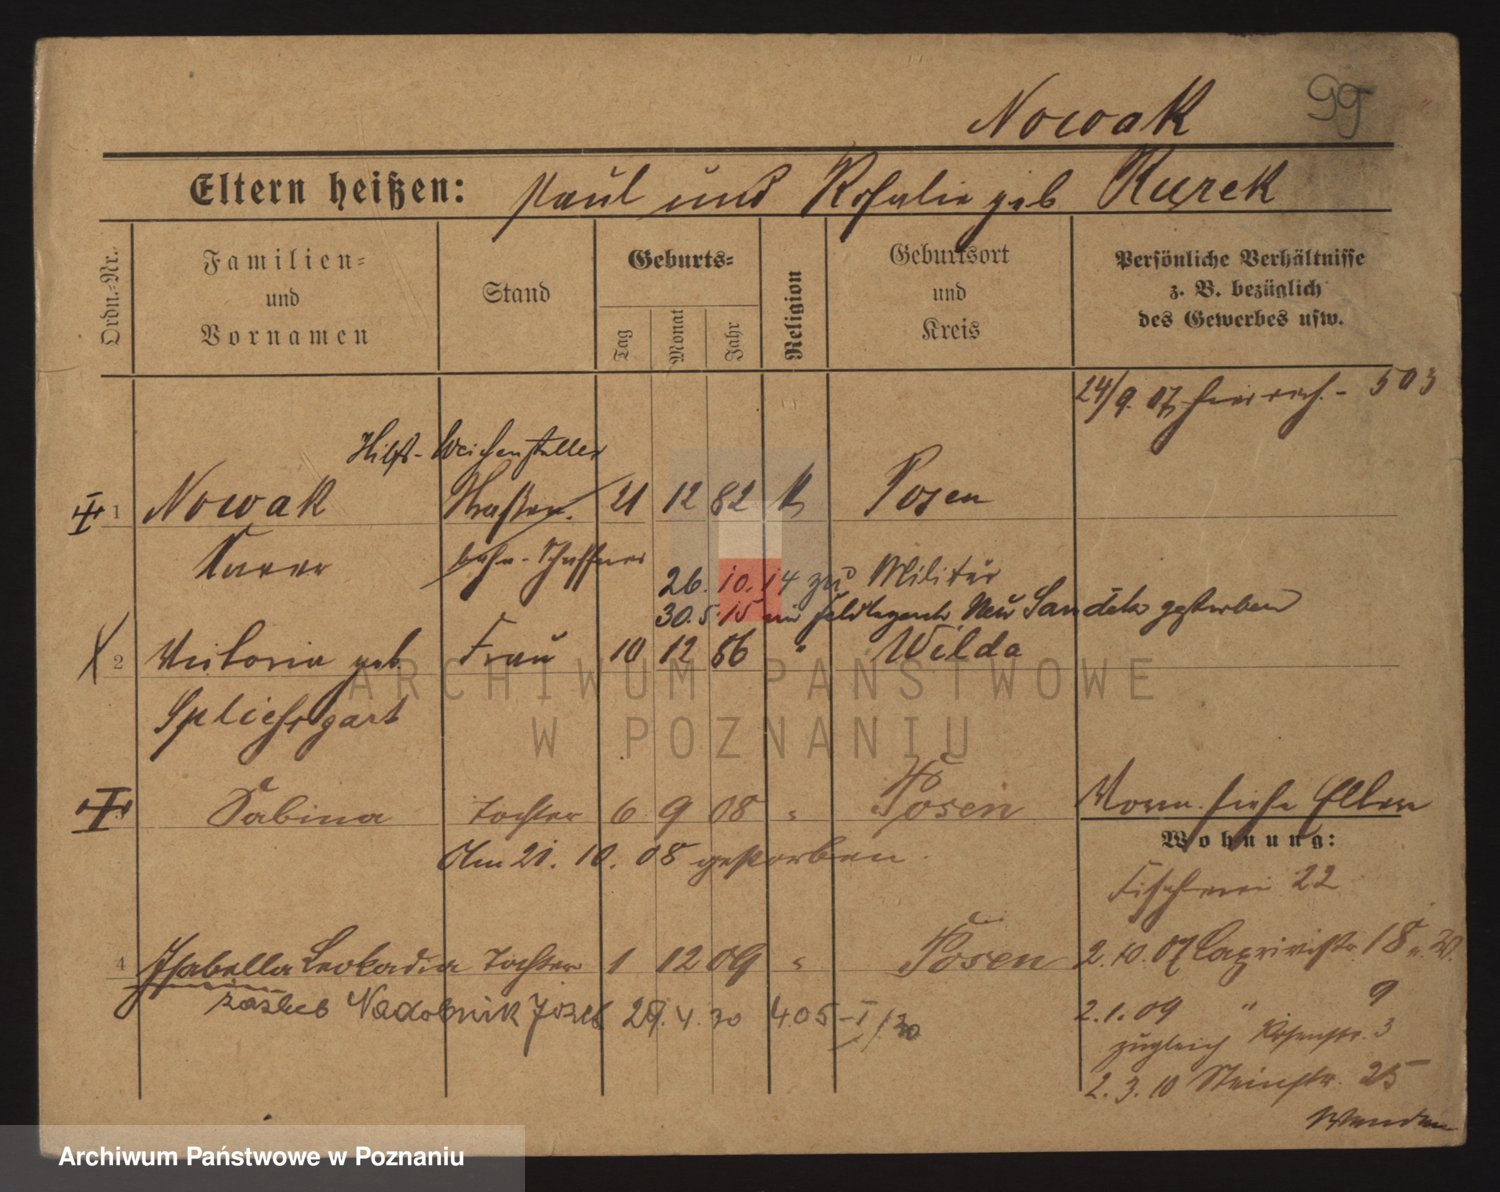 Nowak
99
Eltern heißen: Paul und Rosalie geb Kurek
Ordn.-Nr.
Familien-
und
Vornamen
Stand
Geburts-
Tag
Monat
Jahr
Religion
Geburtsort
und
Kreis
Persönliche Verhältnisse
z. B. bezüglich
des Gewerbes usw.
24/9. 07 503
Hilfs-Weichensteller
1 Nowak Straßen. 21 12 82 K Posen
Xaver bahn-Schaffner
26. 10. 14 zu Militär
30. 5. 15 im Neu Sandek gestorben
2 Viktoria geb Frau 10 12 86 " Wilda
Spliesgart
Sabina Tochter 6 9 08 " Posen
Vorm. siehe Eltern
Am 21. 10. 08 gestorben.
Wohnung:
Fischerei 22
4 Isabella Leokadia Tochter 1 12 09 " Posen
2. 10. 07 Caprivistr. 18
zaślub Nadobnik Józef 29. 4. 30 405-I/30
2. 1. 09 " 9
zugleich Rosenstr. 3
2. 3. 10 Steinstr. 25
Wenden
ARCHIWUM PAŃSTWOWE
W POZNANIU
Archiwum Państwowe w Poznaniu